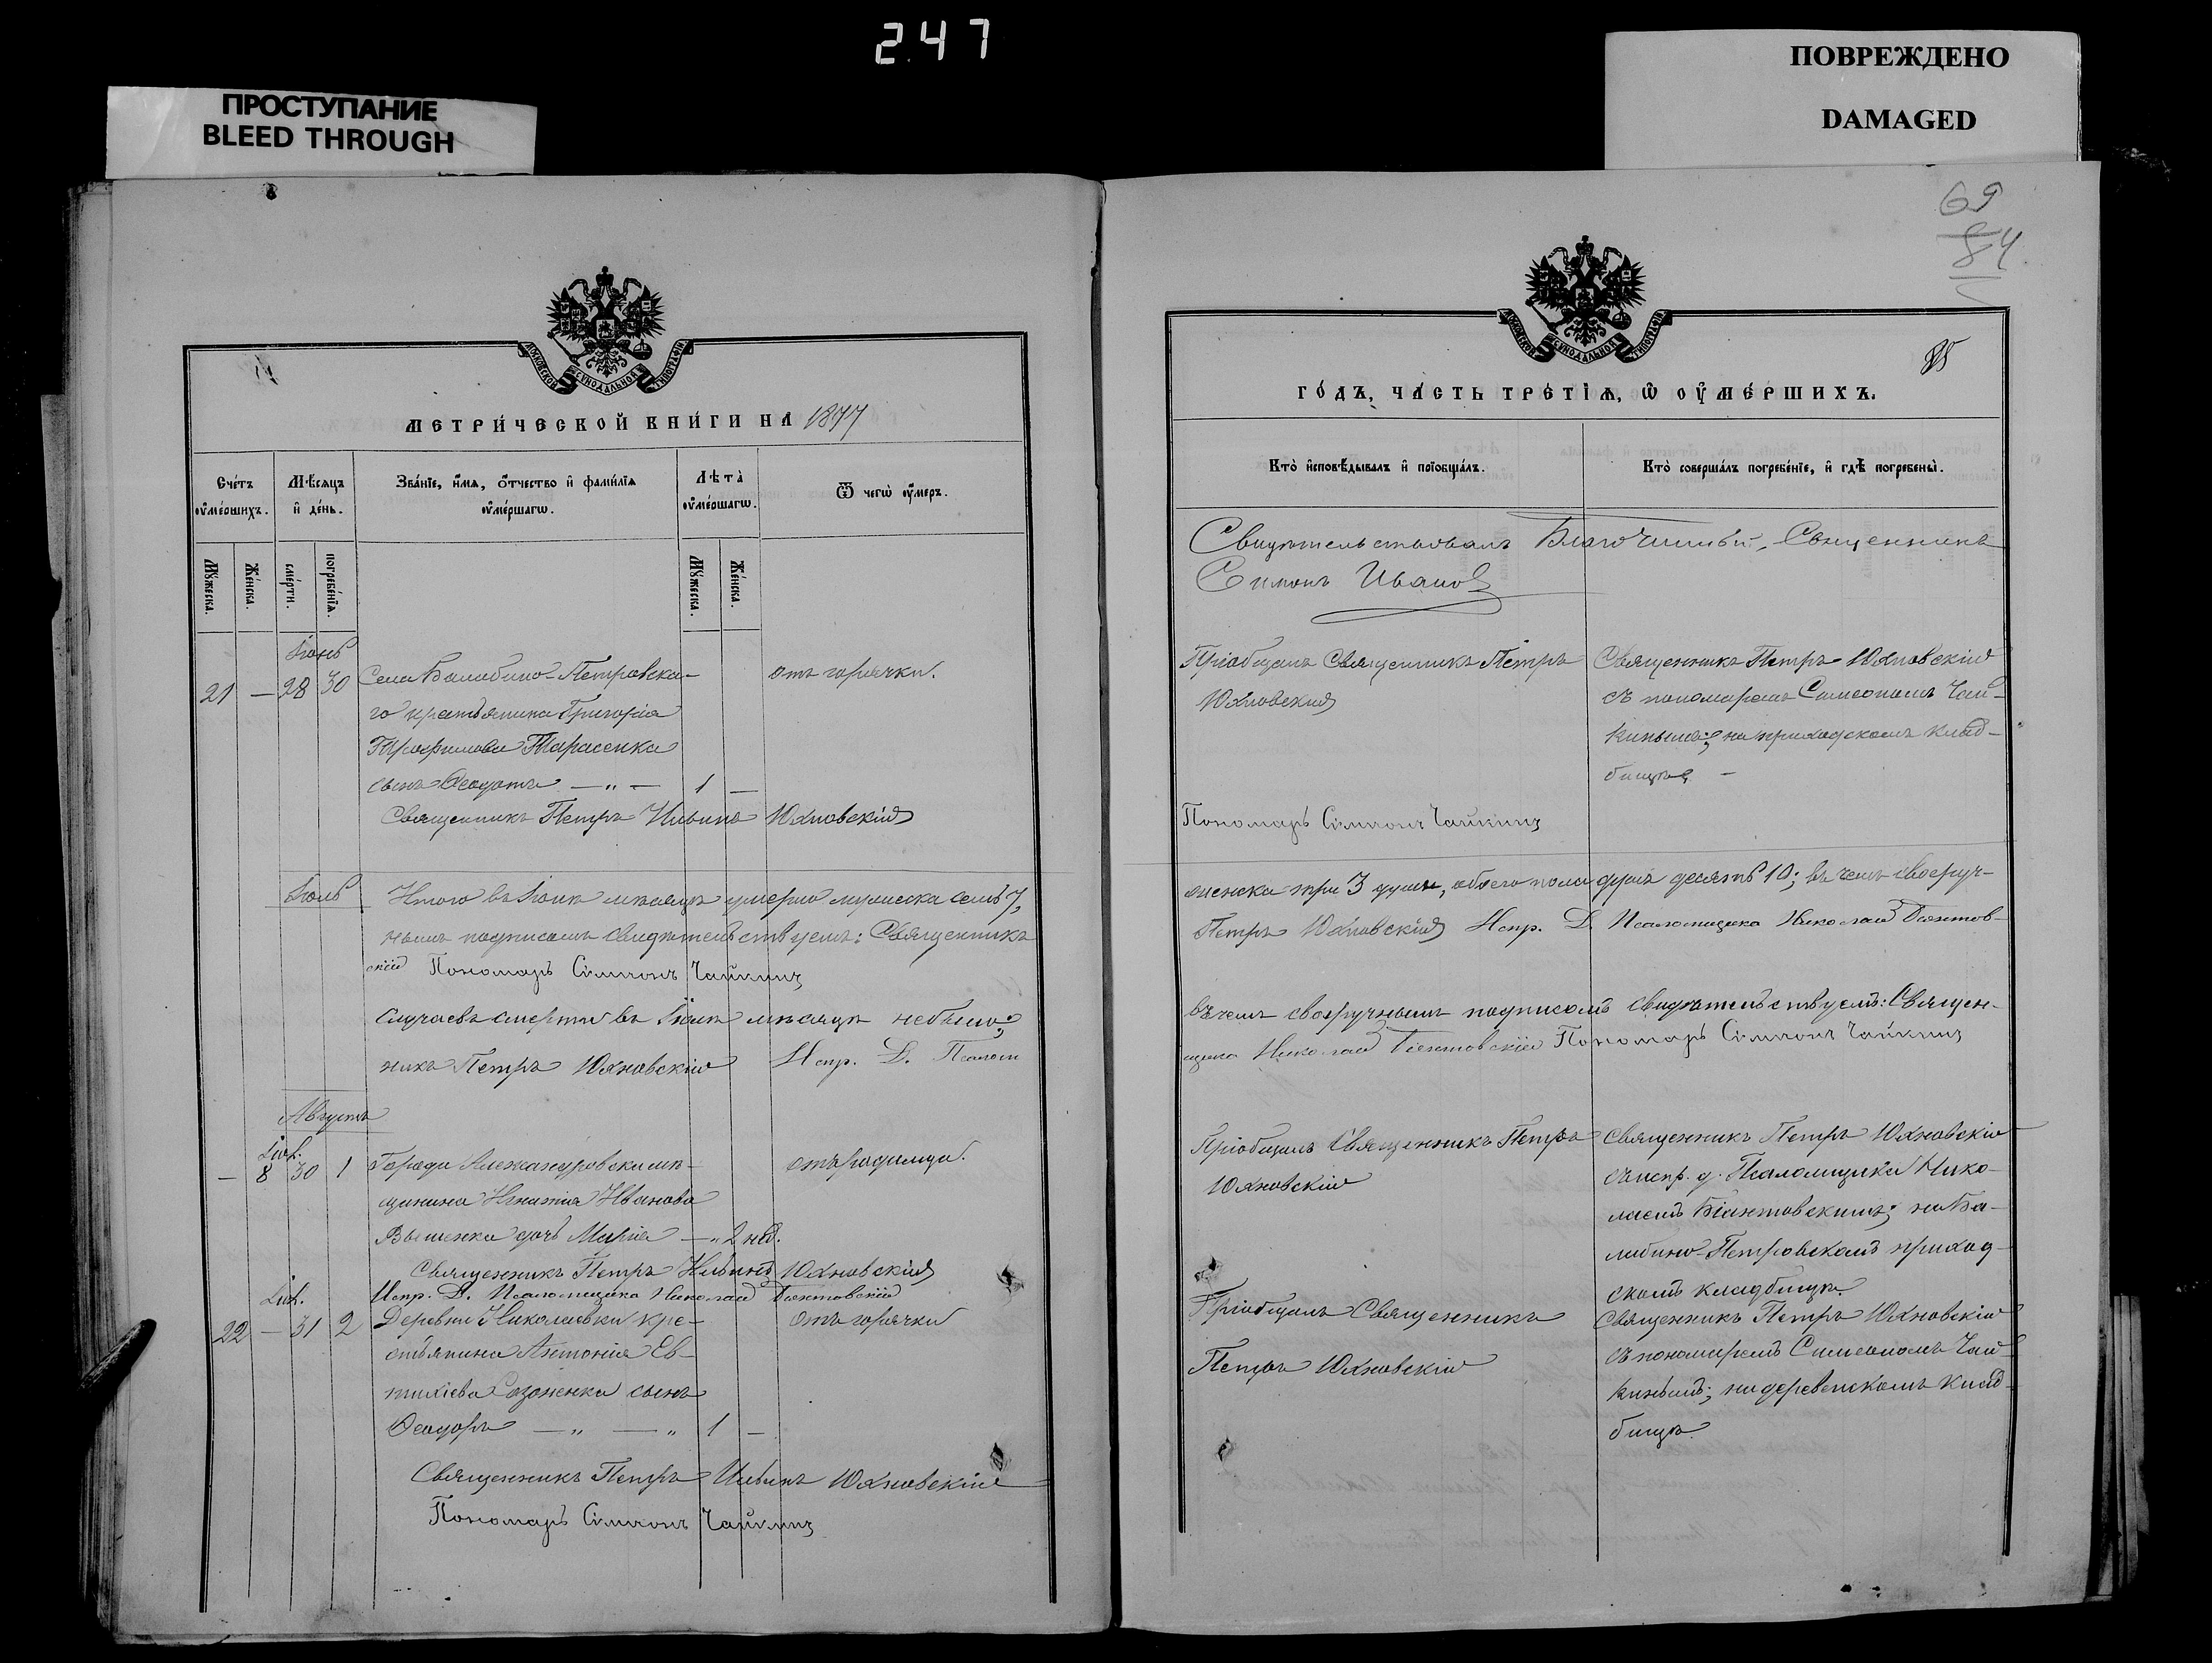 247
ПРОСТУПАНИЕ
BLEED THROUGH
ПОВРЕЖДЕНО
DAMAGED
МОСКОВСКОЙ СѴНОДАЛЬНОЙ ТИПОГРАФІИ
МЕТРИ́ЧЕСКОЙ КНИ́ГИ НА 1877
Сче́тъ ᲂу҆ме́ршихъ.
Мѣ́сяцъ и҆ де́нь.
Зва́нїе, и҆́мѧ, ѻ҆́тчество и҆ фамилі́ѧ ᲂу҆ме́ршагѡ.
Лѣта̀ ᲂу҆ме́ршагѡ.
Ѿ чегѡ̀ ᲂу҆́меръ.
Мꙋ́жеска.
Же́нска.
сме́рти.
погребе́нїѧ.
Мꙋ́жеска.
Же́нска.
Іюнь
21 — 28 30 Села Балабино-Петровска-
го крестьянина Григорія
Трофимова Тарасенка
сынъ Ѳеодотъ — „ — 1 —
отъ горячки.
Священникъ Петръ Ильинъ Юхновскій
Іюль
Итого въ Іюнѣ мѣсяцѣ умерло мужеска семь 7,
нымъ подписомъ свидѣтельствуемъ: Священникъ
скій Пономарь Симеонъ Чайкинъ
Случаевъ смерти въ Іюлѣ мѣсяцѣ небыло;
никъ Петръ Юхновскій Испр. Д. Псалом
Августъ
Іюл.
— 8 30 1 Города Александровска мѣ-
щанина Игнатія Иванова
дочь Марія — „ 2 нед.
отъ родимца.
Священникъ Петръ Ильинъ Юхновскій
Испр. Д. Псаломщика Николай Біянтовскій
Іюл.
22 — 31 2 Деревни Николаевки кре-
стьянина Антонія Ев-
тихіева Созоненка сынъ
Ѳеодоръ — „ — „ 1 —
отъ горячки
Священникъ Петръ Ильинъ Юхновскій
Пономарь Симеонъ Чайкинъ
69
84
85
МОСКОВСКОЙ СѴНОДАЛЬНОЙ ТИПОГРАФІИ
ГО́ДЪ, ЧА́СТЬ ТРЕ́ТІѦ, Ѡ҆ ОУ҆МЕ́РШИХЪ.
Кто̀ и҆сповѣ́дывалъ и҆ прїѡбща́лъ.
Кто̀ соверша́лъ погребе́нїе, и҆ гдѣ̀ погребены̀.
Свидѣтельствовалъ Благочинный, Священникъ
Симонъ Иванов
Пріобщалъ Священникъ Петръ
Юхновскій
Священникъ Петръ Юхновскій
съ пономаремъ Симеономъ Чай-
кинымъ; на приходскомъ клад-
бищѣ —
Пономарь Симеонъ Чайкинъ
женска три 3 души, обоего пола душъ десять 10; въ чемъ своеруч-
Петръ Юхновскій Испр. Д. Псаломщика Николай Біянтов-
въ чемъ своеручнымъ подписомъ свидѣтельствуемъ: Священ-
щика Николай Біянтовскій Пономарь Симеонъ Чайкинъ
Пріобщалъ Священникъ Петръ
Юхновскій
Священникъ Петръ Юхновскій
съ испр. д. Псаломщика Нико-
лаемъ Біянтовскимъ; на Ба-
лабино-Петровскомъ приход-
скомъ кладбищѣ.
Пріобщалъ Священникъ
Петръ Юхновскій
Священникъ Петръ Юхновскій
съ пономаремъ Симеономъ Чай-
кинымъ; на деревенскомъ клад-
бищѣ.